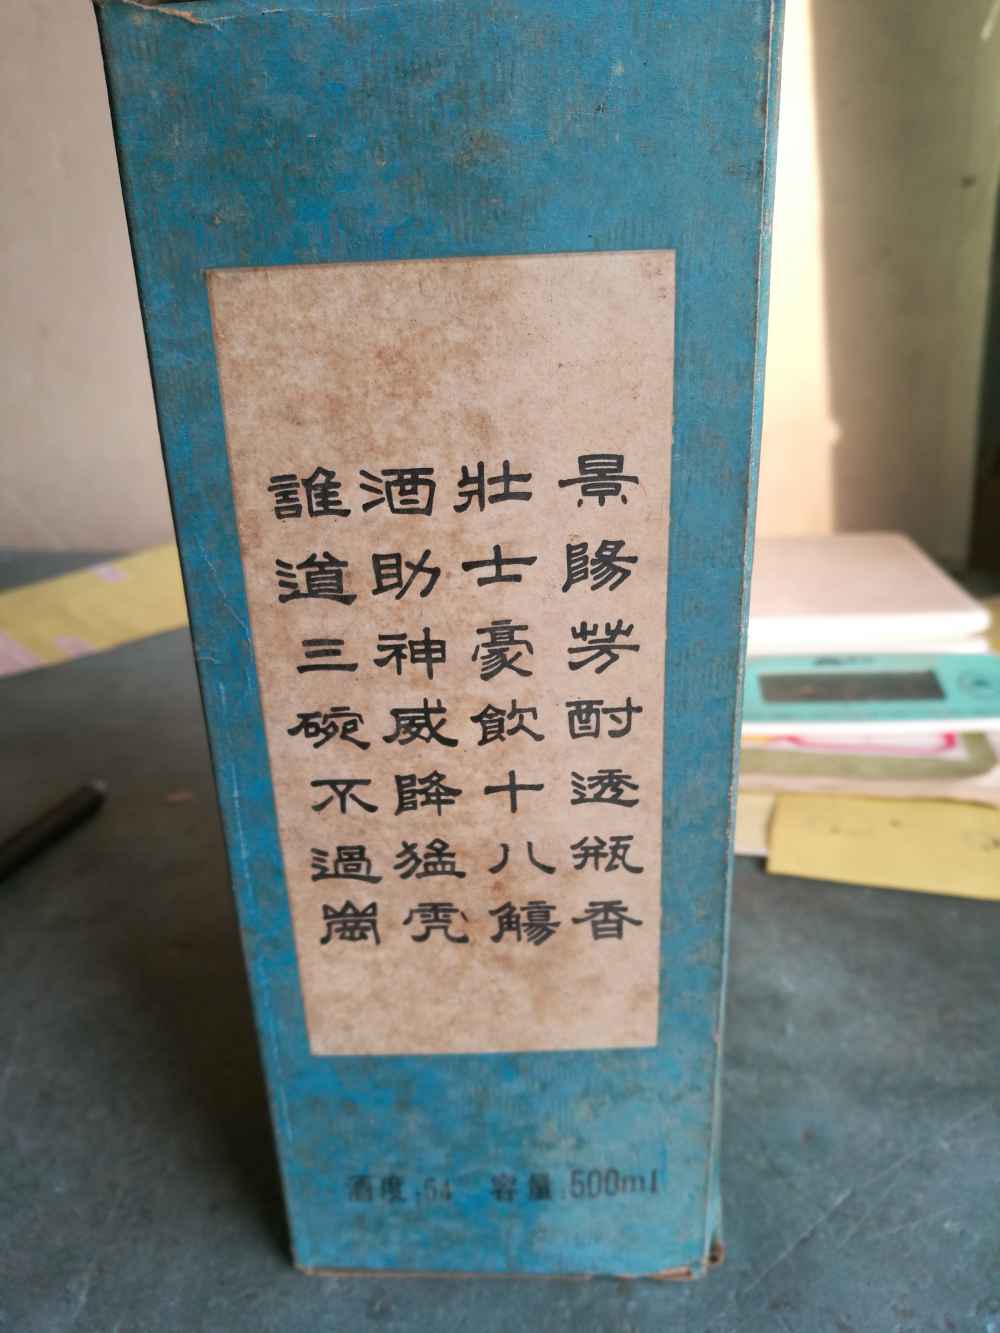 景陽芳酎透瓶香
壯士豪飲十八觴
酒助神威降猛虎
誰道三碗不過崗
酒度:54 容量:500ml